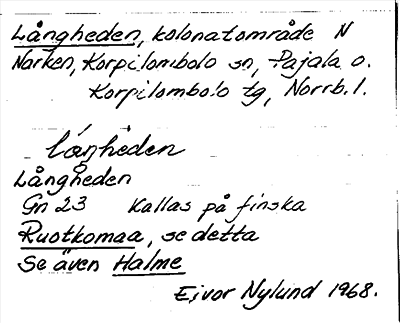 Långheden, kolonatområde N
Narken, Korpilombolo sn, Pajala o.
Korpilombolo tg, Norrb. l.
lågheden
Långheden
Gn 23 Kallas på finska
Ruotkomaa, se detta
Se även Halme
Eivor Nylund 1968.